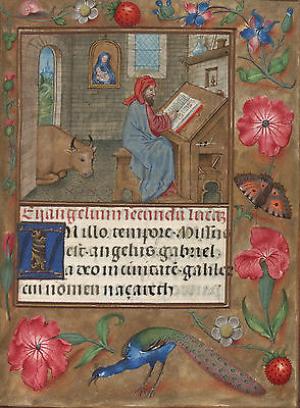 Evangelium secundu lucaz
In illo tempore Missus
est angelus gabriel
a deo in ciuitate galilee
cui nomen naçareth